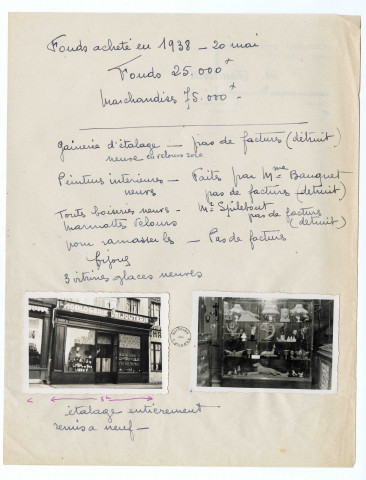 Fonds acheté en 1938 - 20 mai
Fonds 25.000
Marchandises 75.000
gainerie d'étalage - pas de facture (détruit)
neuve en velours soie
Peinture intérieures - Faits par Mme Bauguet
neuves pas de facture (détruit)
Touts boiseries neuves - Mr Spilebout
pas de facture
(détruit)
Marmottes velours
pour ramasser les - Pas de facture
bijoux
3 vitrines glaces neuves
HORLOGERIE BIJOUTERIE
étalage entièrement
remis a neuf -